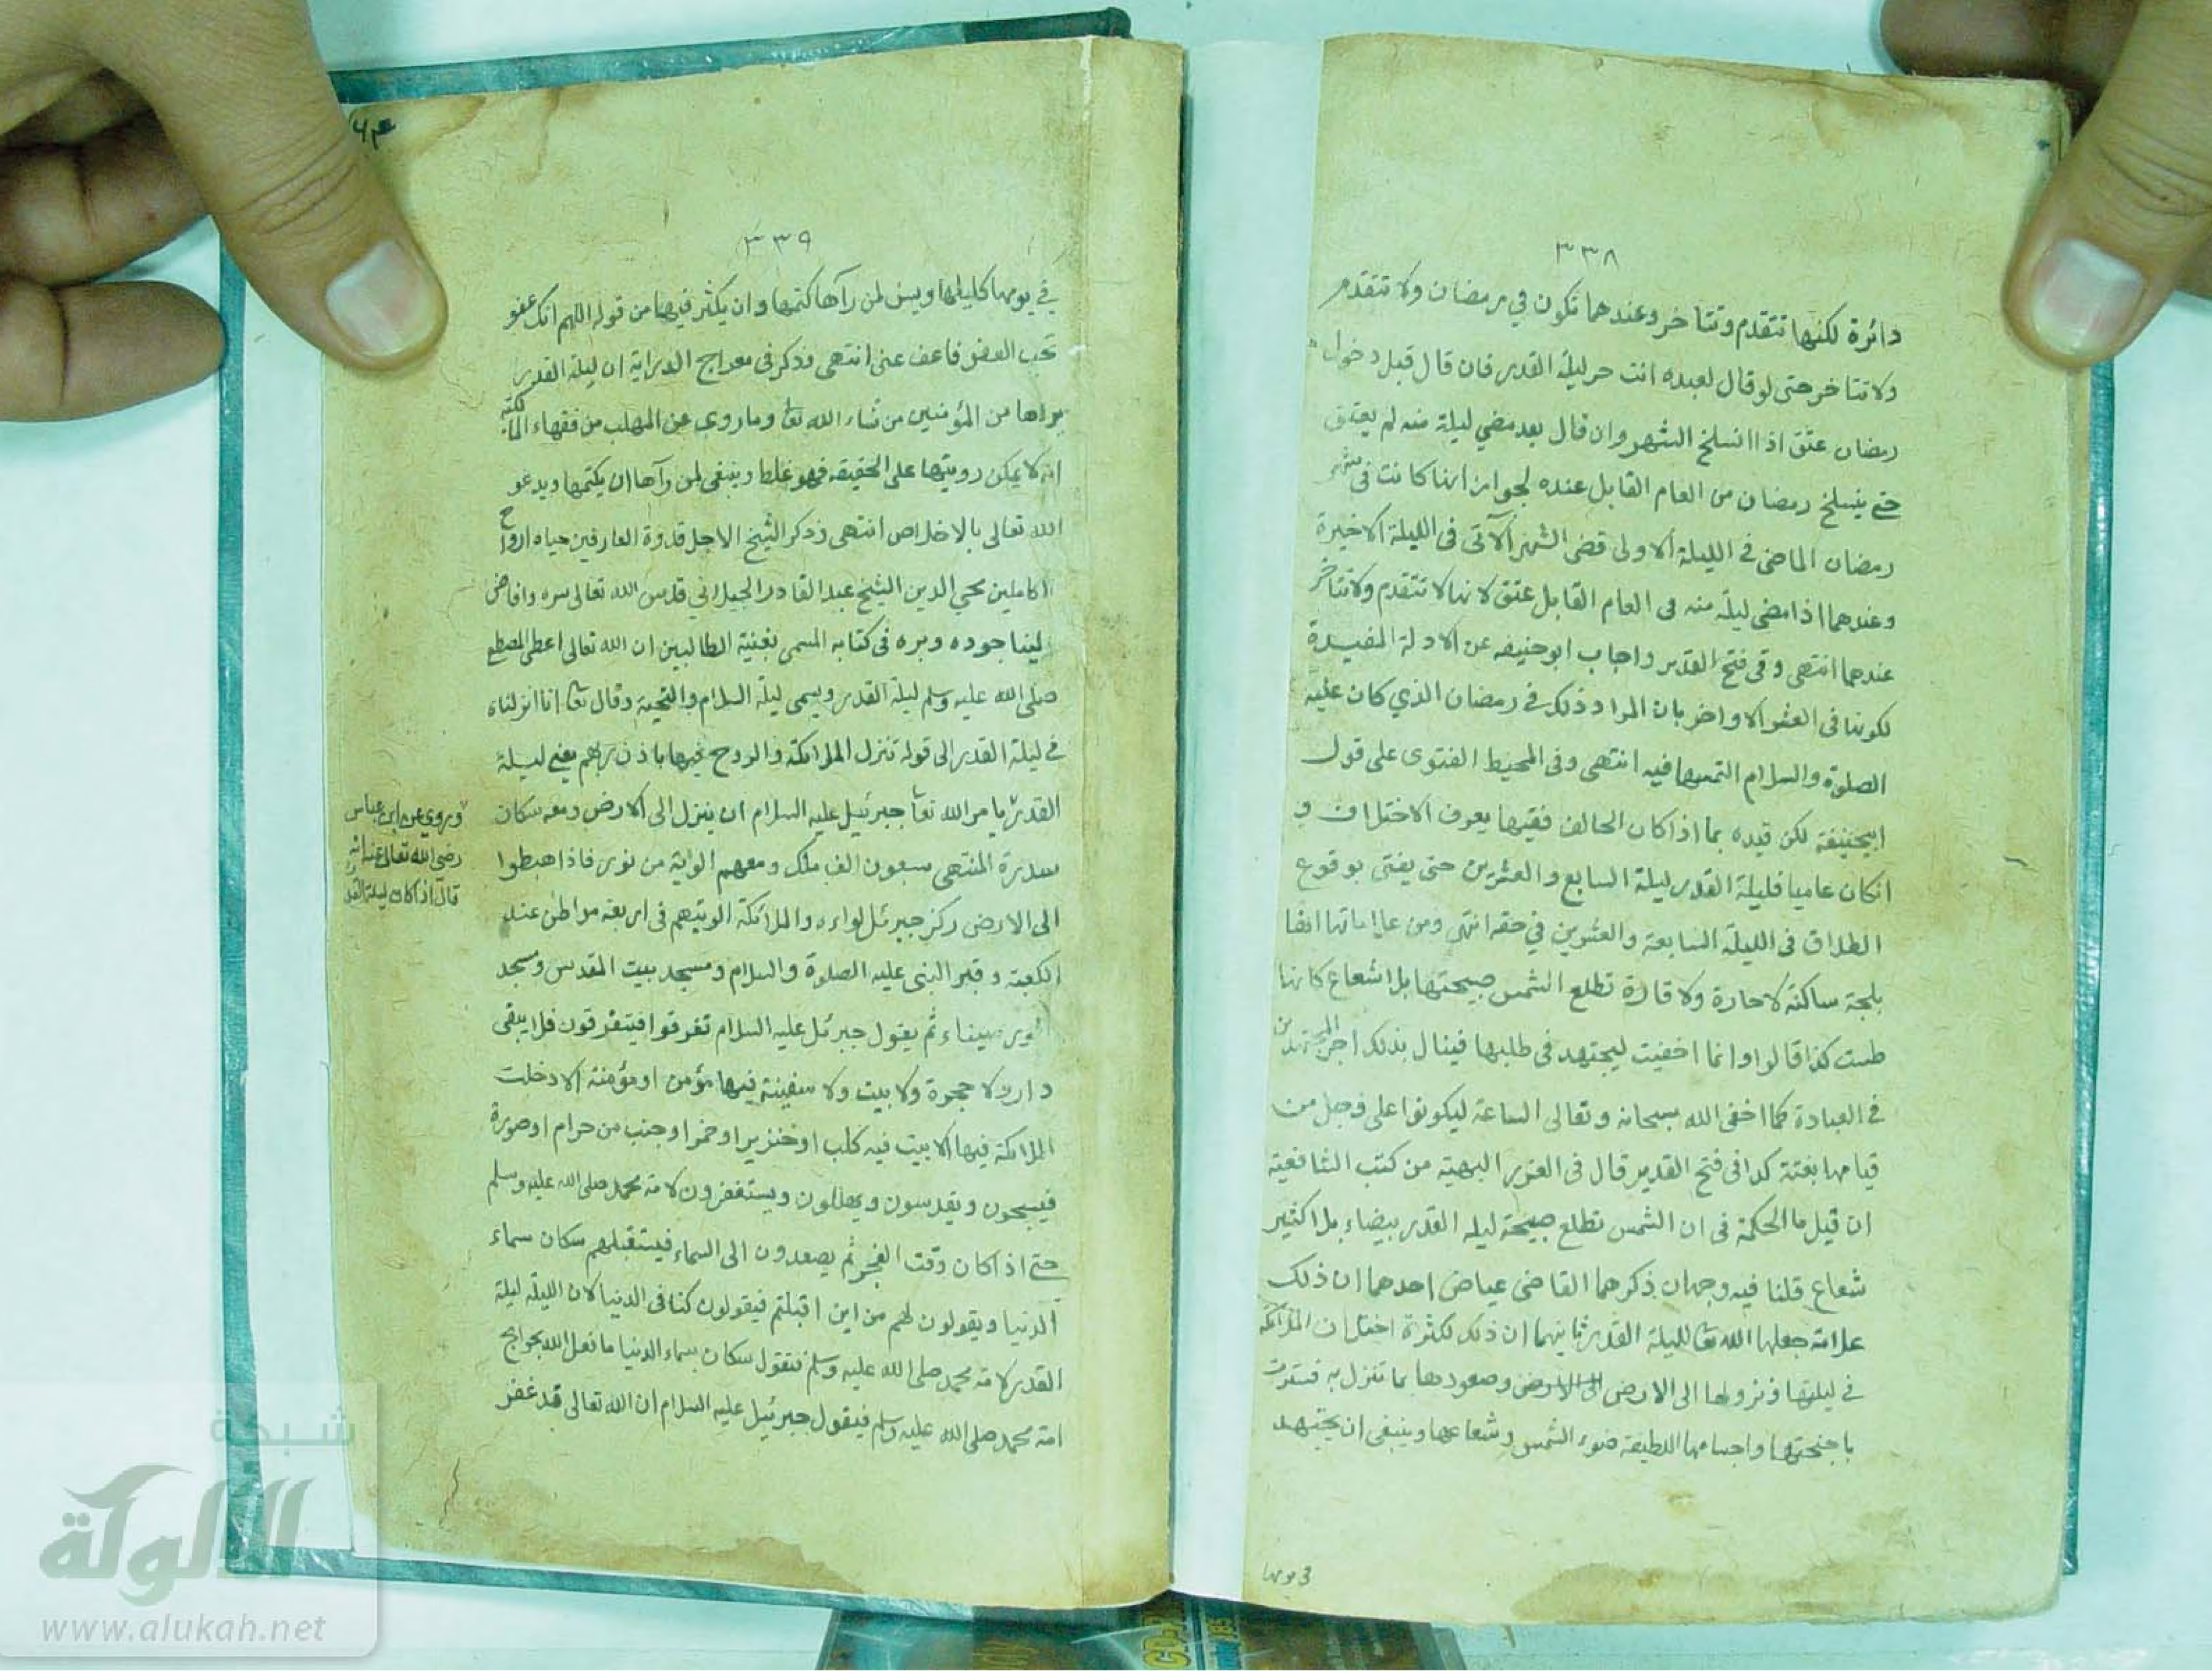 ٣٣٨
دائرة لكنها تتقدم وتتاخر وعندهما تكون في رمضان ولا تتقدم
ولا تتاخر حتى لو قال لعبده انت حر ليلة القدر فان قال قبل دخول
رمضان عتق اذا انسلخ الشهر وان قال بعد مضي ليلة منه لم يعتق
حتى ينسلخ رمضان من العام القابل عنده لجواز انها كانت في شهر
رمضان الماضى في الليلة الاولى قضى الشهر الآتى فى الليلة الاخيرة
وعندهما اذا مضى ليلة منه فى العام القابل عتق لانها لا تتقدم ولا تتاخر
عندهما انتهى وفى فتح القدير واجاب ابوحنيفه عن الادلة المفيدة
لكونها فى العشر الاواخر بان المراد ذلك في رمضان الذي كان عليه
الصلوة والسلام التمسها فيه انتهى وفى المحيط الفتوى على قول
ابيحنيفة لكن قيده بما اذا كان الحالف فقيها يعرف الاختلاف و
انكان عاميا فليلة القدر ليلة السابع والعشرين حتى يفتى بوقوع
الطلاق فى الليلة السابعة والعشرين في حقه انتهى ومن علاماتها انها
بلجة ساكنة لا حارة ولا قارة تطلع الشمس صبيحتها بلا شعاع كانها
طست كذا قالوا وانما اخفيت ليجتهد فى طلبها فينال بذلك اجر المجتهدين
في العبادة كما اخفى الله سبحانه وتعالى الساعة ليكونوا على وجل من
قيامها بغتة كذا فى فتح القدير قال فى الغرر البهية من كتب الشافعية
ان قيل ما الحكمة فى ان الشمس تطلع صبيحة ليله القدر بيضاء بلا كثير
شعاع قلنا فيه وجهان ذكرهما القاضى عياض احدهما ان ذلك
علامة جعلها الله تعا لليلة القدر ثانيهما ان ذلك لكثرة اختلاف الملائكة
في ليلتها ونزولها الى الارض وصعودها بما تنزل به فسترت
باجنحتها واجسامها اللطيفة ضوء الشمس وشعاعها وينبغى ان يجتهد
فى يومها
٣٣٩
في يومها كليلها ويسن لمن رآها كتمها وان يكثر فيها من قوله اللهم انك عفو
تحب العفو فاعف عنى انتهى وذكر فى معراج الدراية ان ليلة القدر
يراها من المؤمنين من شاء الله تعا وما روى عن المهلب من فقهاء المالكية
انه لا يمكن رويتها على الحقيقة فهو غلط وينبغى لمن رآها ان يكتمها ويدعو
الله تعالى بالاخلاص انتهى وذكر الشيخ الاجل قدوة العارفين حياه ارواح
الكاملين محي الدين الشيخ عبد القادر الجيلاني قدس الله تعالى سره وافاض
علينا جوده وبره فى كتابه المسمى بغنية الطالبين ان الله تعالى اعطى المصطفى
صلى الله عليه وسلم ليلة القدر ويسمى ليلة السلام والتحية وقال تعا انا انزلناه
في ليلة القدر الى قوله تنزل الملائكة والروح فيها باذن ربهم يعنى ليلة
القدر يامر الله تعا جبرئيل عليه السلام ان ينزل الى الارض ومعه سكان
سدرة المنتهى سبعون الف ملك ومعهم الوية من نور فاذا هبطوا
الى الارض ركز جبرئل لواءه والملائكة الويتهم فى اربعة مواطن عند
الكعبة وقبر النبى عليه الصلوة والسلام ومسجد بيت المقدس ومسجد
طور سيناء ثم يقول جبرئل عليه السلام تفرقوا فيتفرقون فلا يبقى
دار ولا حجرة ولا بيت ولا سفينة فيها مؤمن او مؤمنة الا دخلت
الملائكة فيها الا بيت فيه كلب او خنزير او خمر او جنب من حرام او صورة
فيسبحون ويقدسون ويهللون ويستغفرون لامة محمد صلى الله عليه وسلم
حتى اذا كان وقت الفجر ثم يصعدون الى السماء فيستقبلهم سكان سماء
الدنيا ويقولون لهم من اين اقبلتم فيقولون كنا فى الدنيا لان الليلة ليلة
القدر لامة محمد صلى الله عليه وسلم فتقول سكان سماء الدنيا ما فعل الله بحوائج
امة محمد صلى الله عليه وسلم فيقول جبرئيل عليه السلام ان الله تعالى قد غفر
وروي عن ابن عباس
رضى الله تعالى عنه انه
قال اذا كان ليلة القدر
شبكة
الألوكة
www.alukah.net